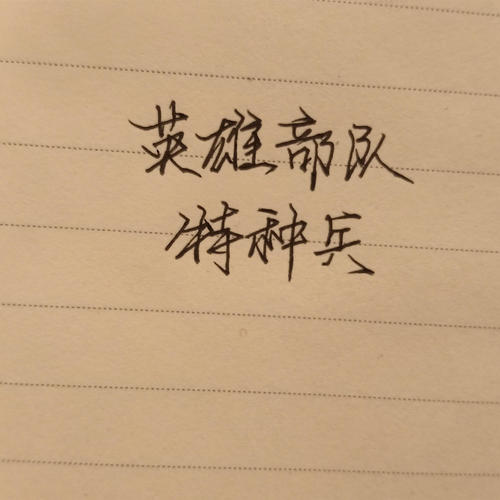 英雄部队
特种兵